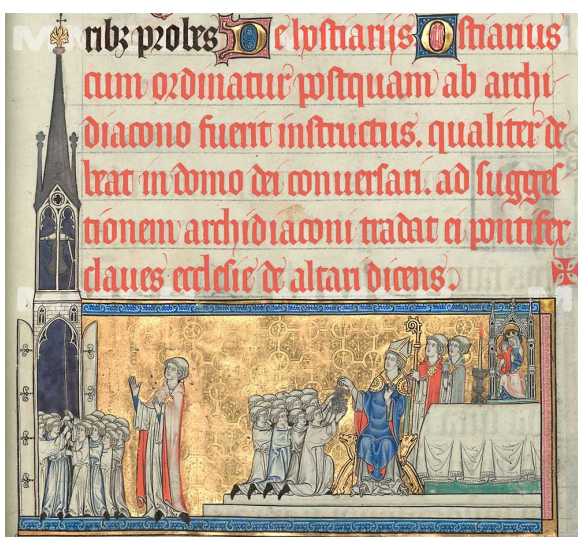 ribꝫ proles De hostiarijs Ostiarius
cum ordinatur postquam ab archi-
diacono fuerit instructus. qualiter de
beat in domo dei conuersari. ad sugges
tionem archidiaconi tradat ei pontifex
claues ecclesie de altari dicens.